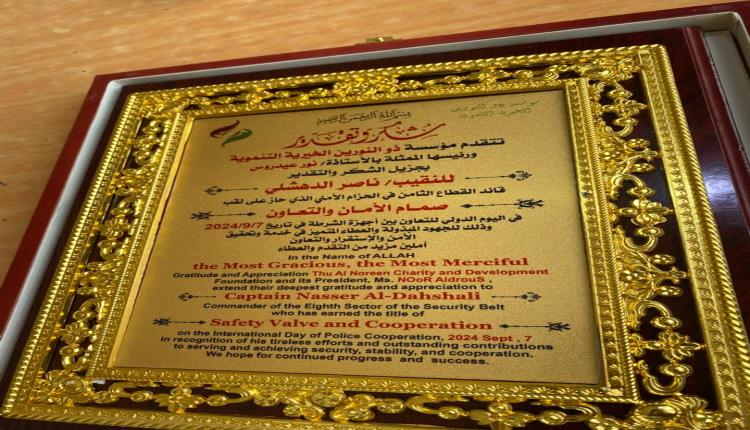 بسم الله الرحمن الرحيم
شكر وتقدير
تتقدم مؤسسة ذو النورين الخيرية التنموية
ورئيسها الممثلة بالأستاذة/ نور عيدروس
بجزيل الشكر والتقدير
للنقيب/ ناصر الدهشلي
قائد القطاع الثامن في الحزام الأمني الذي حاز على لقب
صمام الأمان والتعاون
في اليوم الدولي للتعاون بين أجهزة الشرطة في تاريخ 2024/9/7
وذلك للجهود المبذولة والعطاء المتميز في خدمة وتحقيق
الأمن والإستقرار والتعاون
آملين مزيد من التقدم والعطاء
In the Name of ALLAH
the Most Gracious, the Most Merciful
Gratitude and Appreciation Thu Al Noreen Charity and Development
Foundation and its President, Ms. NOoR AidrouS ,
extend their deepest gratitude and appreciation to
Captain Nasser Al-Dahshali
Commander of the Eighth Sector of the Security Belt
who has earned the title of
Safety Valve and Cooperation
on the International Day of Police Cooperation, 2024 Sept , 7
in recognition of his tireless efforts and outstanding contributions
to serving and achieving security, stability, and cooperation.
We hope for continued progress and success.